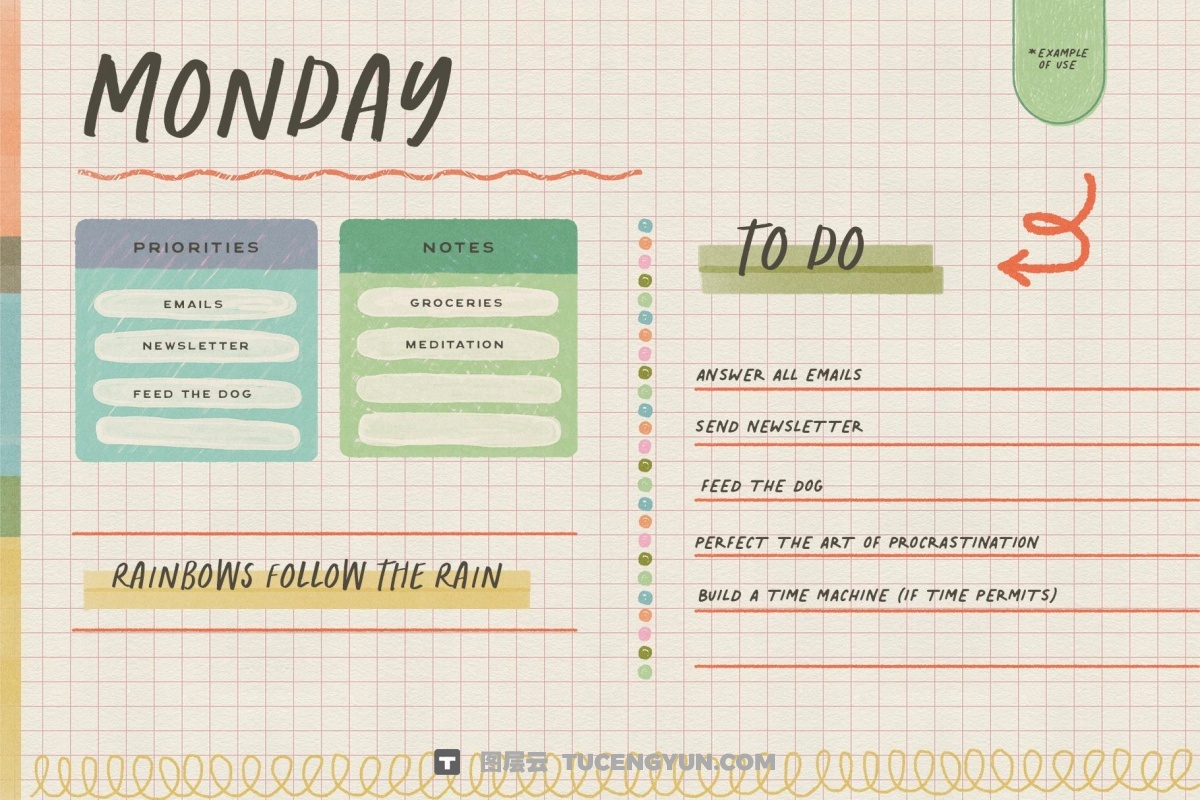 MONDAY
*EXAMPLE
OF USE
PRIORITIES
EMAILS
NEWSLETTER
FEED THE DOG
NOTES
GROCERIES
MEDITATION
RAINBOWS FOLLOW THE RAIN
TO DO
ANSWER ALL EMAILS
SEND NEWSLETTER
FEED THE DOG
PERFECT THE ART OF PROCRASTINATION
BUILD A TIME MACHINE (IF TIME PERMITS)
T 图层云 TUCENGYUN.COM